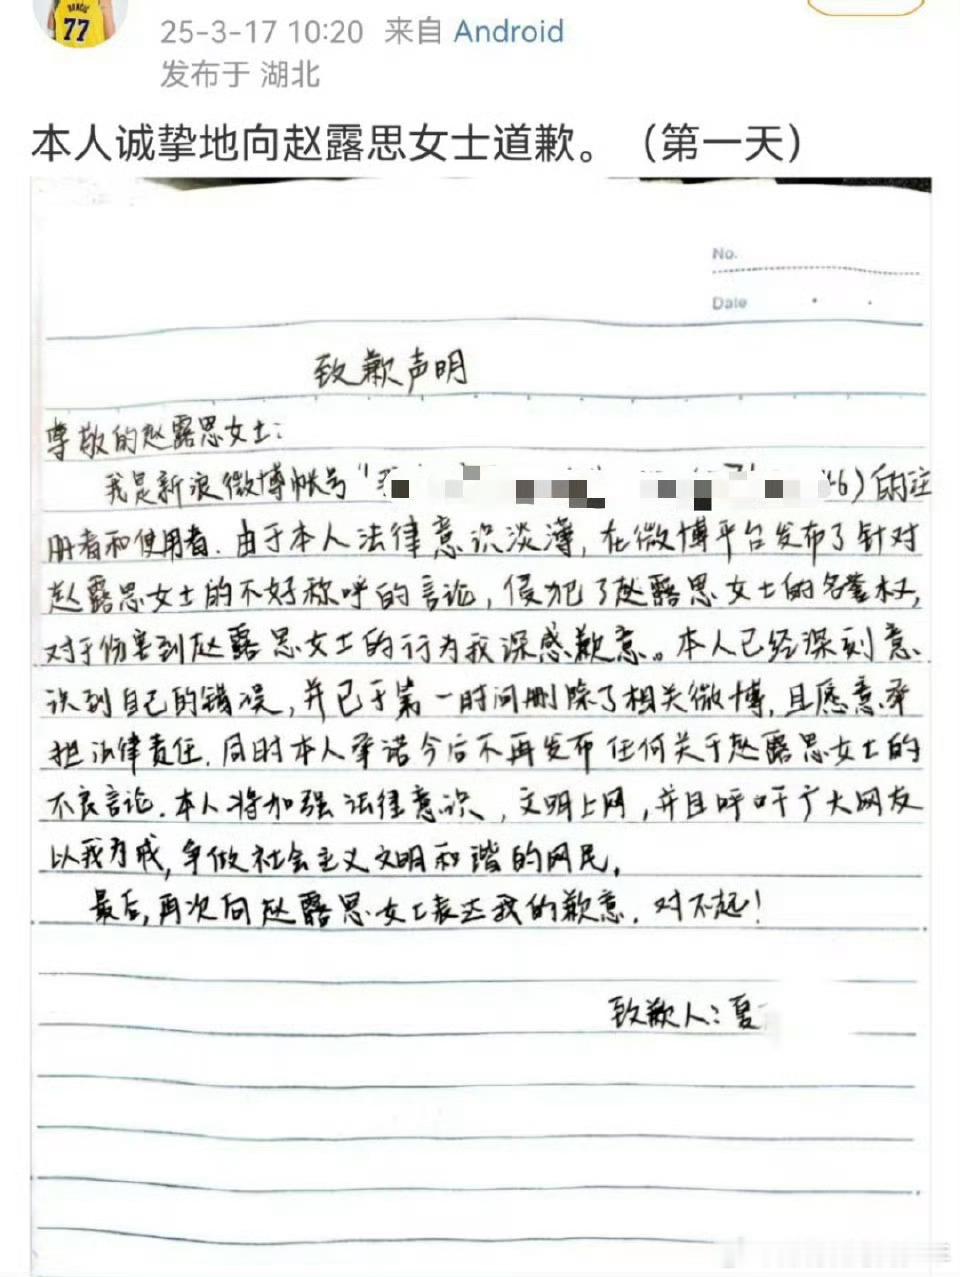 77
25-3-17 10:20 来自 Android
发布于 湖北
本人诚挚地向赵露思女士道歉。（第一天）
No.
Date
致歉声明
尊敬的赵露思女士：
我是新浪微博帐号“ 6）的注
册者和使用者。由于本人法律意识淡薄，在微博平台发布了针对
赵露思女士的不好称呼的言论，侵犯了赵露思女士的名誉权，
对于伤害到赵露思女士的行为我深感歉意。本人已经深刻意
识到自己的错误，并已于第一时间删除了相关微博，且愿意承
担法律责任。同时本人承诺今后不再发布任何关于赵露思女士的
不良言论。本人将加强法律意识，文明上网，并且呼吁广大网友
以我为戒，争做社会主义文明和谐的网民。
最后，再次向赵露思女士表达我的歉意。对不起！
致歉人：夏